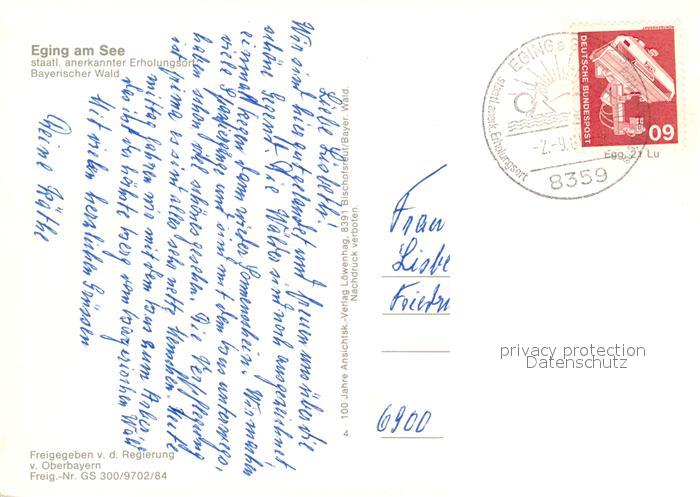 Eging am See
staatl. anerkannter Erholungsort
Bayerischer Wald
Liebe Lisbeth!
Wir sind hier gut gelandet und freuen uns über die
schöne Gegend. Die Wälder sind noch ausgezeichnet
einmal Regen dann wieder Sonnenschein. Wir machen
viele Spaziergänge und sind mit dem Bus unterwegs,
haben schon viel schönes gesehen. Die Verpflegung
ist prima es sind alles sehr nette Menschen. Heute
mittag fahren wir mit dem Bus zum Arber
das ist der höchste Berg vom bayerischen Wald
Mit vielen herzlichen Grüssen
Deine Käthe
Freigegeben v. d. Regierung
v. Oberbayern
Freig.-Nr. GS 300/9702/84
4 100 Jahre Ansichtsk.-Verlag Löwenhag, 8391 Bischofsreut/Bayer. Wald.
Nachdruck verboten.
EGING a
staatl. anerk. Erholungsort
-2.-9.
8359
DEUTSCHE BUNDESPOST
60
Egg. 21 Lu
Frau
Lisbe
Friedr
6900
privacy protection
Datenschutz